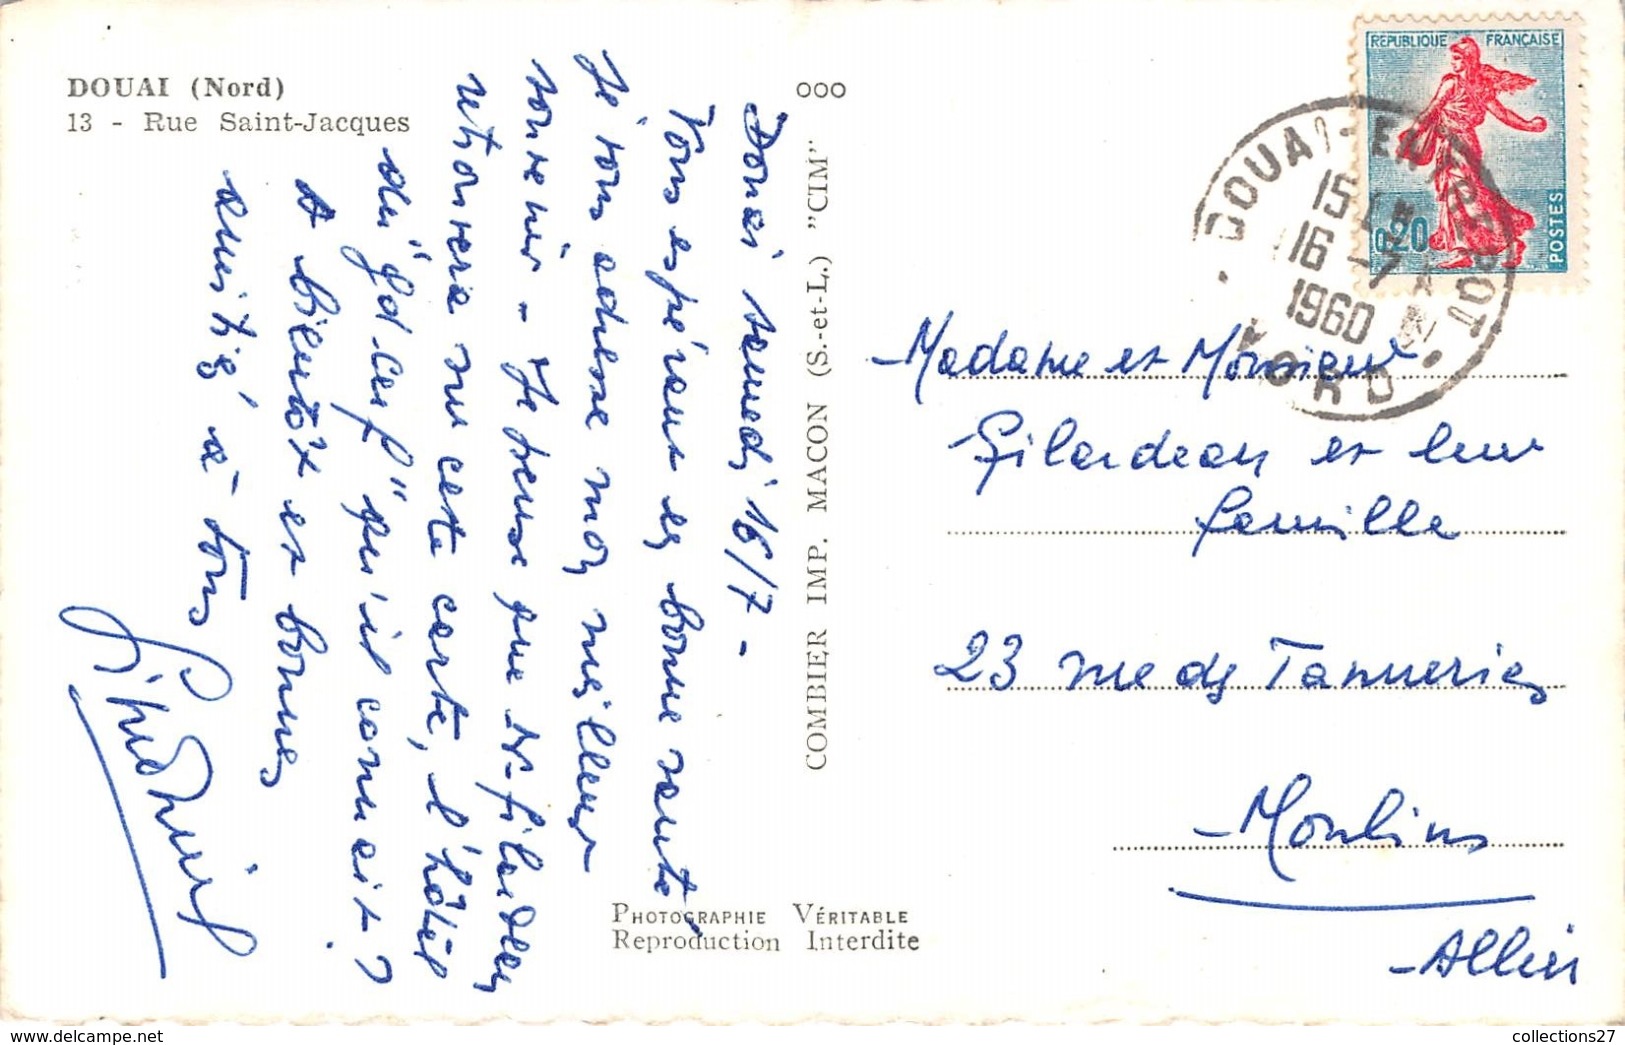 DOUAI (Nord)
13 - Rue Saint-Jacques
Douai samedi 16/7 -
Vous espérant en bonne santé
je vous adresse mon meilleur
souvenir - Je pense que Mr Gilardeau
retrouvera sur cette carte, l'hôtel
du "Gd Cerf" qu'il connait ?
A bientôt et bonnes
amitiés à tous
ooo
COMBIER IMP. MACON (S.-et-L.) "CIM"
PHOTOGRAPHIE VÉRITABLE
Reproduction Interdite
REPUBLIQUE FRANÇAISE
0,20
POSTES
DOUAI-ENTREPOT
15
16 -7
1960
NORD
Madame et Monsieur
Gilardeau et leur
famille
23 rue des Tanneries
Moulins
Allier
collections27